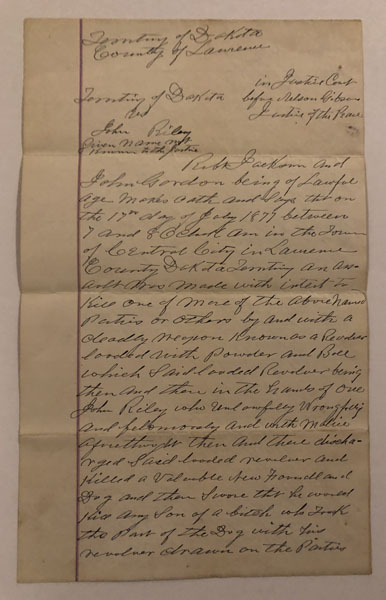 Territory of Dakota
County of Lawrence
in Justice Cort
before Nelson Gibson
Justice of the Peace
Territory of Dakota
vs
John Riley
Given name not
known to the parties
Robt Jackson and
John Gordon being of Lawful
age makes oath and says that on
the 17th day of July 1877 between
7 and 8 oclock Am in the Town
of Central City in Laurence
County Dakota Territory an as-
ault was made with intent to
Kill one of more of the above named
Parties or others by and with a
deadly weapon Known as a Revolver
loaded with Powder and Ball
which said loaded Revolver being
then and there in the hands of one
John Riley who unlawfully wrongfully
and feloniously and with Malice
aforethought then and there discha-
rged said loaded revolver and
Killed a Valuable New Foundland
Dog and then Swore that he would
Kill any Son of a bitch who Took
the Part of the Dog with his
revolver drawn on the Parties